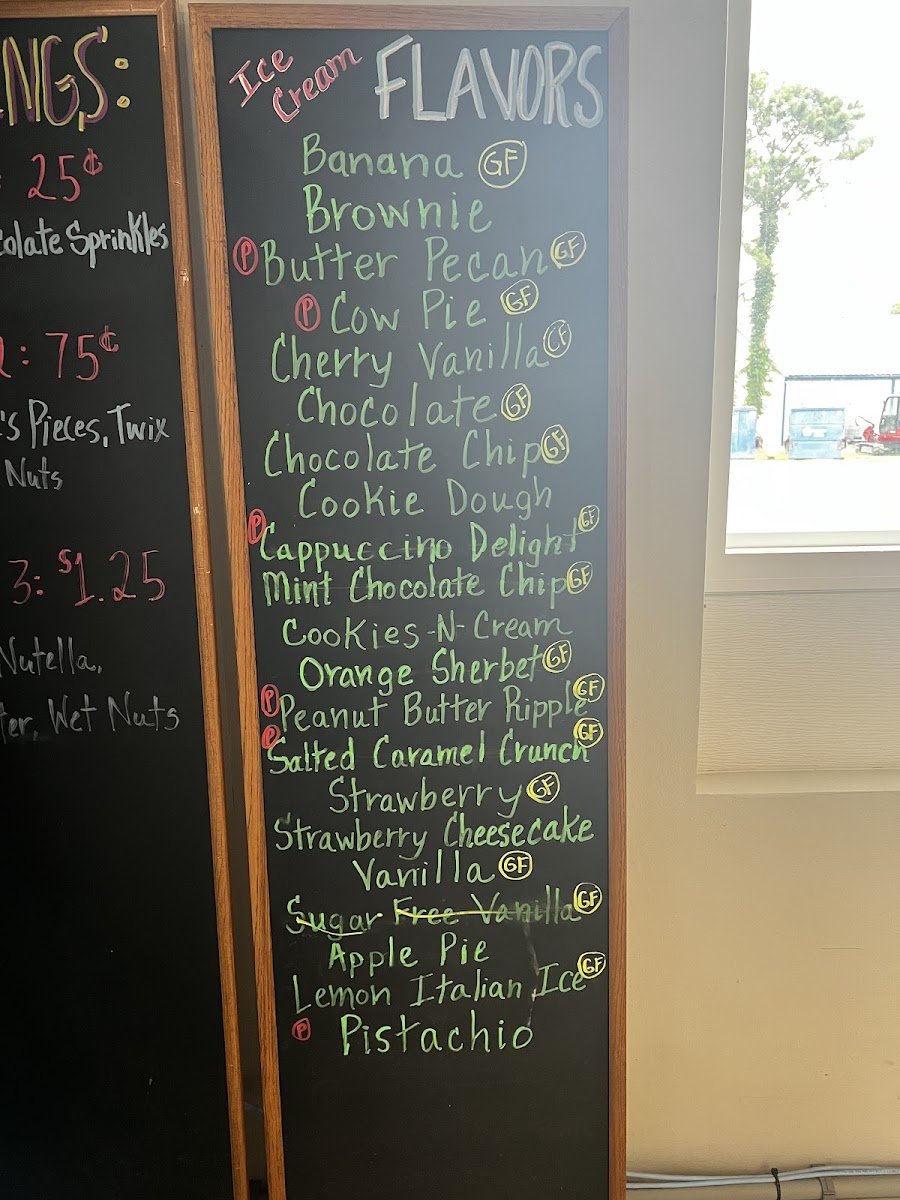 NGS:
25¢
colate Sprinkles
2: 75¢
's Pieces, Twix
Nuts
3: $1.25
Nutella,
ter, Wet Nuts
Ice
Cream
FLAVORS
Banana GF
Brownie
P Butter Pecan GF
P Cow Pie GF
Cherry Vanilla GF
Chocolate GF
Chocolate Chip GF
Cookie Dough
P Cappuccino Delight GF
Mint Chocolate Chip GF
Cookies-N-Cream
Orange Sherbet GF
P Peanut Butter Ripple GF
P Salted Caramel Crunch GF
Strawberry GF
Strawberry Cheesecake
Vanilla GF
Sugar Free Vanilla GF
Apple Pie
Lemon Italian Ice GF
P Pistachio